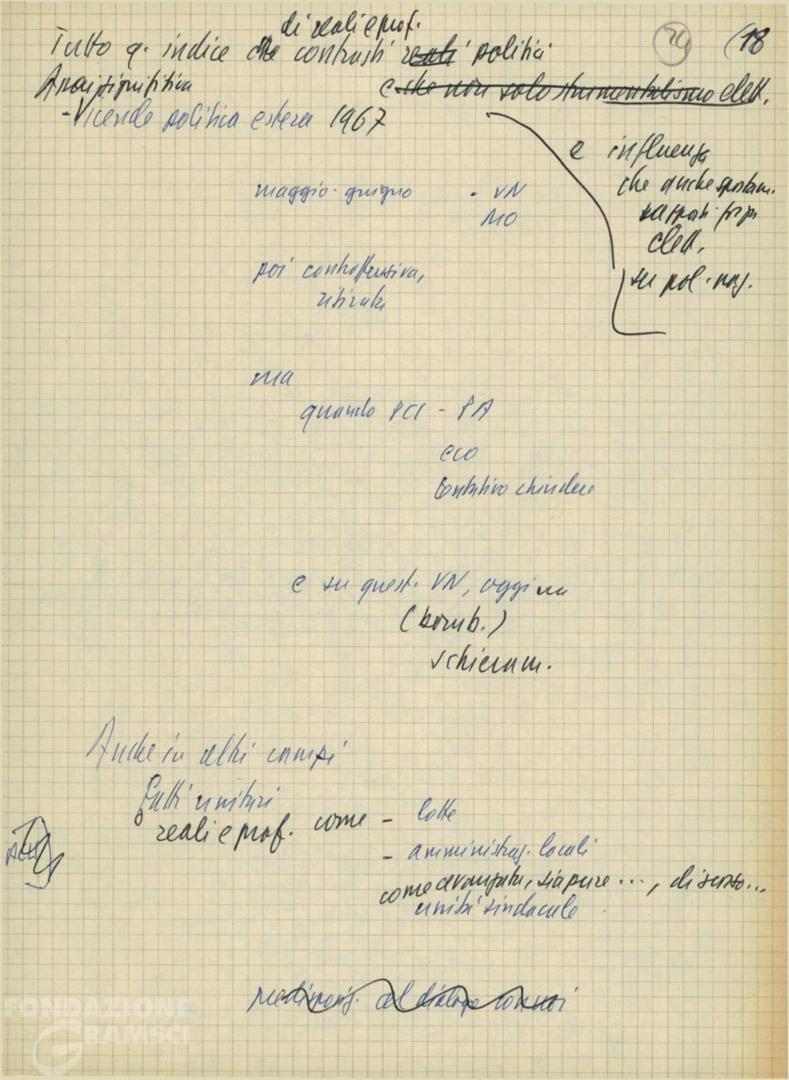 di reali e prof.
Tutto q. indice che contrasti reali politici
24 (18
e che non solo strumentalismo elett.
- Vicende politica estera 1967
e influenza
che anche spostam.
rapporti forze
elett.
su pol. naz.
maggio-giugno - VN
MO
poi controffensiva,
ritirata
ma
quando PCI - PA
eco
tentativo chiudere
e su quest. VN, oggi
(bomb.)
schieram.
Anche in altri campi
fatti unitari
o reali e prof. come - lotte
- amministraz. locali
come avanzata, sia pure ..., discorso...
unità sindacale
predispos. al dialogo con noi
FONDAZIONE
GRAMSCI